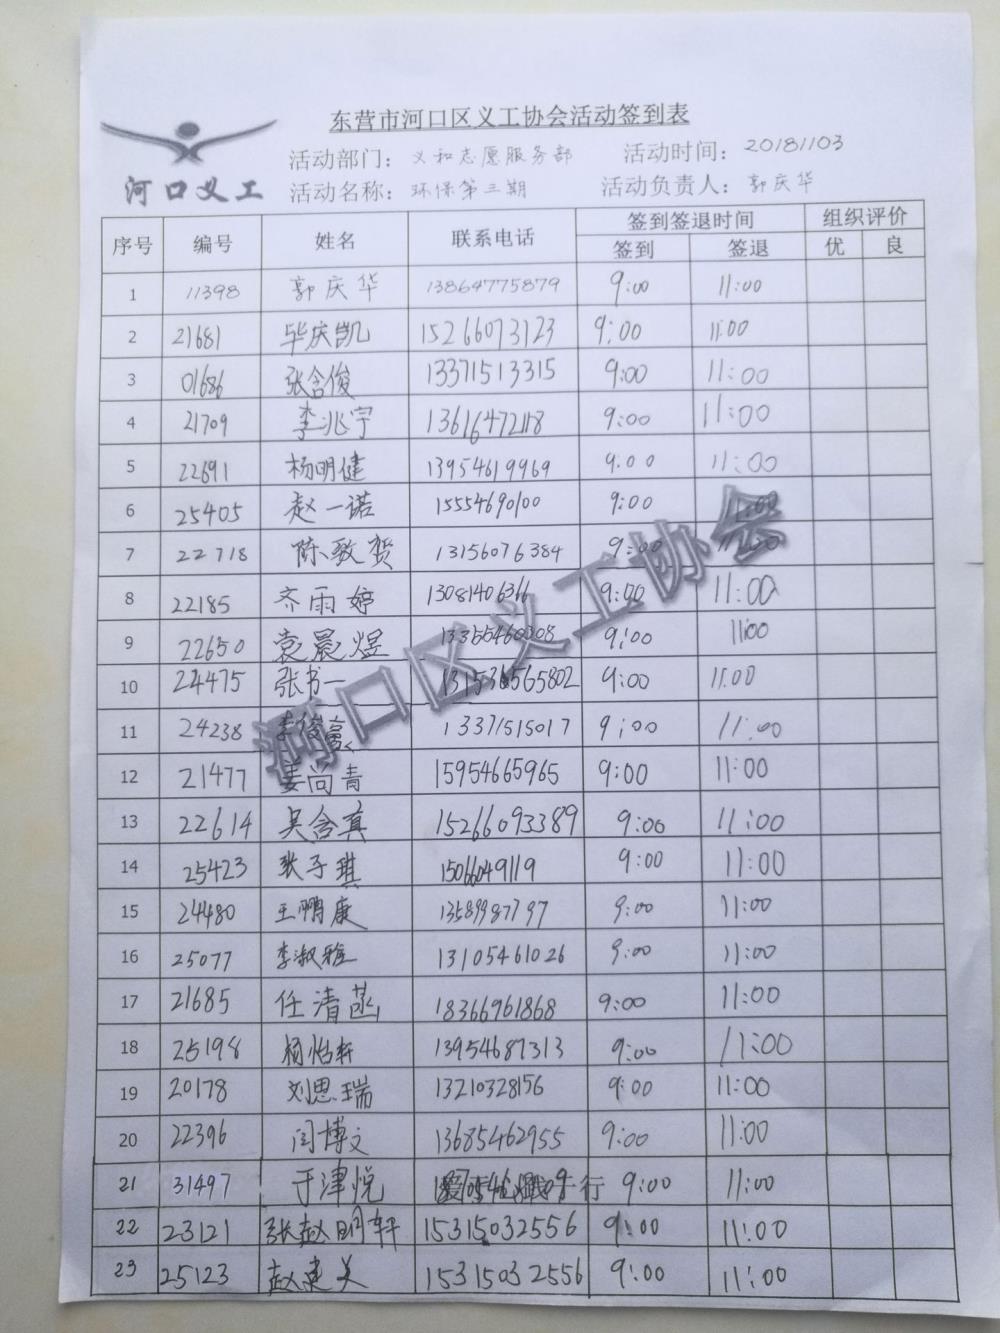 东营市河口区义工协会活动签到表
河口义工
活动部门：义和志愿服务部 活动时间：20181103
活动名称：环保第三期 活动负责人：郭庆华
序号 编号 姓名 联系电话 签到签退时间 组织评价
签到 签退 优 良
1 11398 郭庆华 13864775879 9:00 11:00
2 21681 毕庆凯 15266073123 9:00 11:00
3 01686 张含俊 13371513315 9:00 11:00
4 21709 李兆宇 13616472118 9:00 11:00
5 22691 杨明健 13954619969 9:00 11:00
6 25405 赵一诺 15554690100 9:00 11:00
7 22718 陈致贺 13156076384 9:00 11:00
8 22185 齐雨婷 13081406366 9:00 11:00
9 22650 袁晨煜 13355460308 9:00 11:00
10 24475 张书一 9:00 11:00
11 24238 李俊豪 13371515017 9:00 11:00
12 21477 姜尚青 15954665965 9:00 11:00
13 22614 吴含真 15266093389 9:00 11:00
14 25423 张子琪 1506049119 9:00 11:00
15 24480 王鹏康 13589987797 9:00 11:00
16 25077 李淑雅 13105461026 9:00 11:00
17 21685 任清菡 18366961868 9:00 11:00
18 25198 杨怡轩 13954687313 9:00 11:00
19 20178 刘思瑞 13210328156 9:00 11:00
20 22396 闫博文 13685462955 9:00 11:00
21 31497 于津悦 9:00 11:00
22 23121 张赵明轩 15315032556 9:00 11:00
23 25123 赵建美 15315032556 9:00 11:00
河口区义工协会